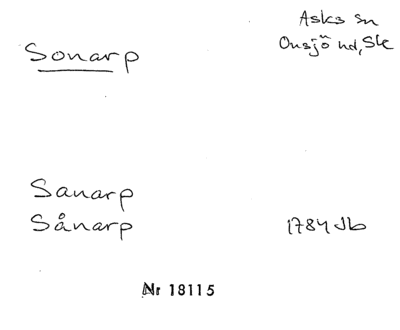 Sonarp
Asks sn
Onsjö hd, Sk
Sanarp
Sånarp
1784 Jb
Nr 18115